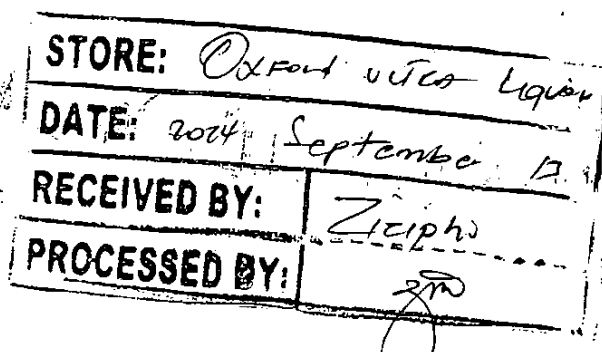 STORE: Oxford ultra Liquor
DATE: 2024 September 17
RECEIVED BY: Zizipho
PROCESSED BY: